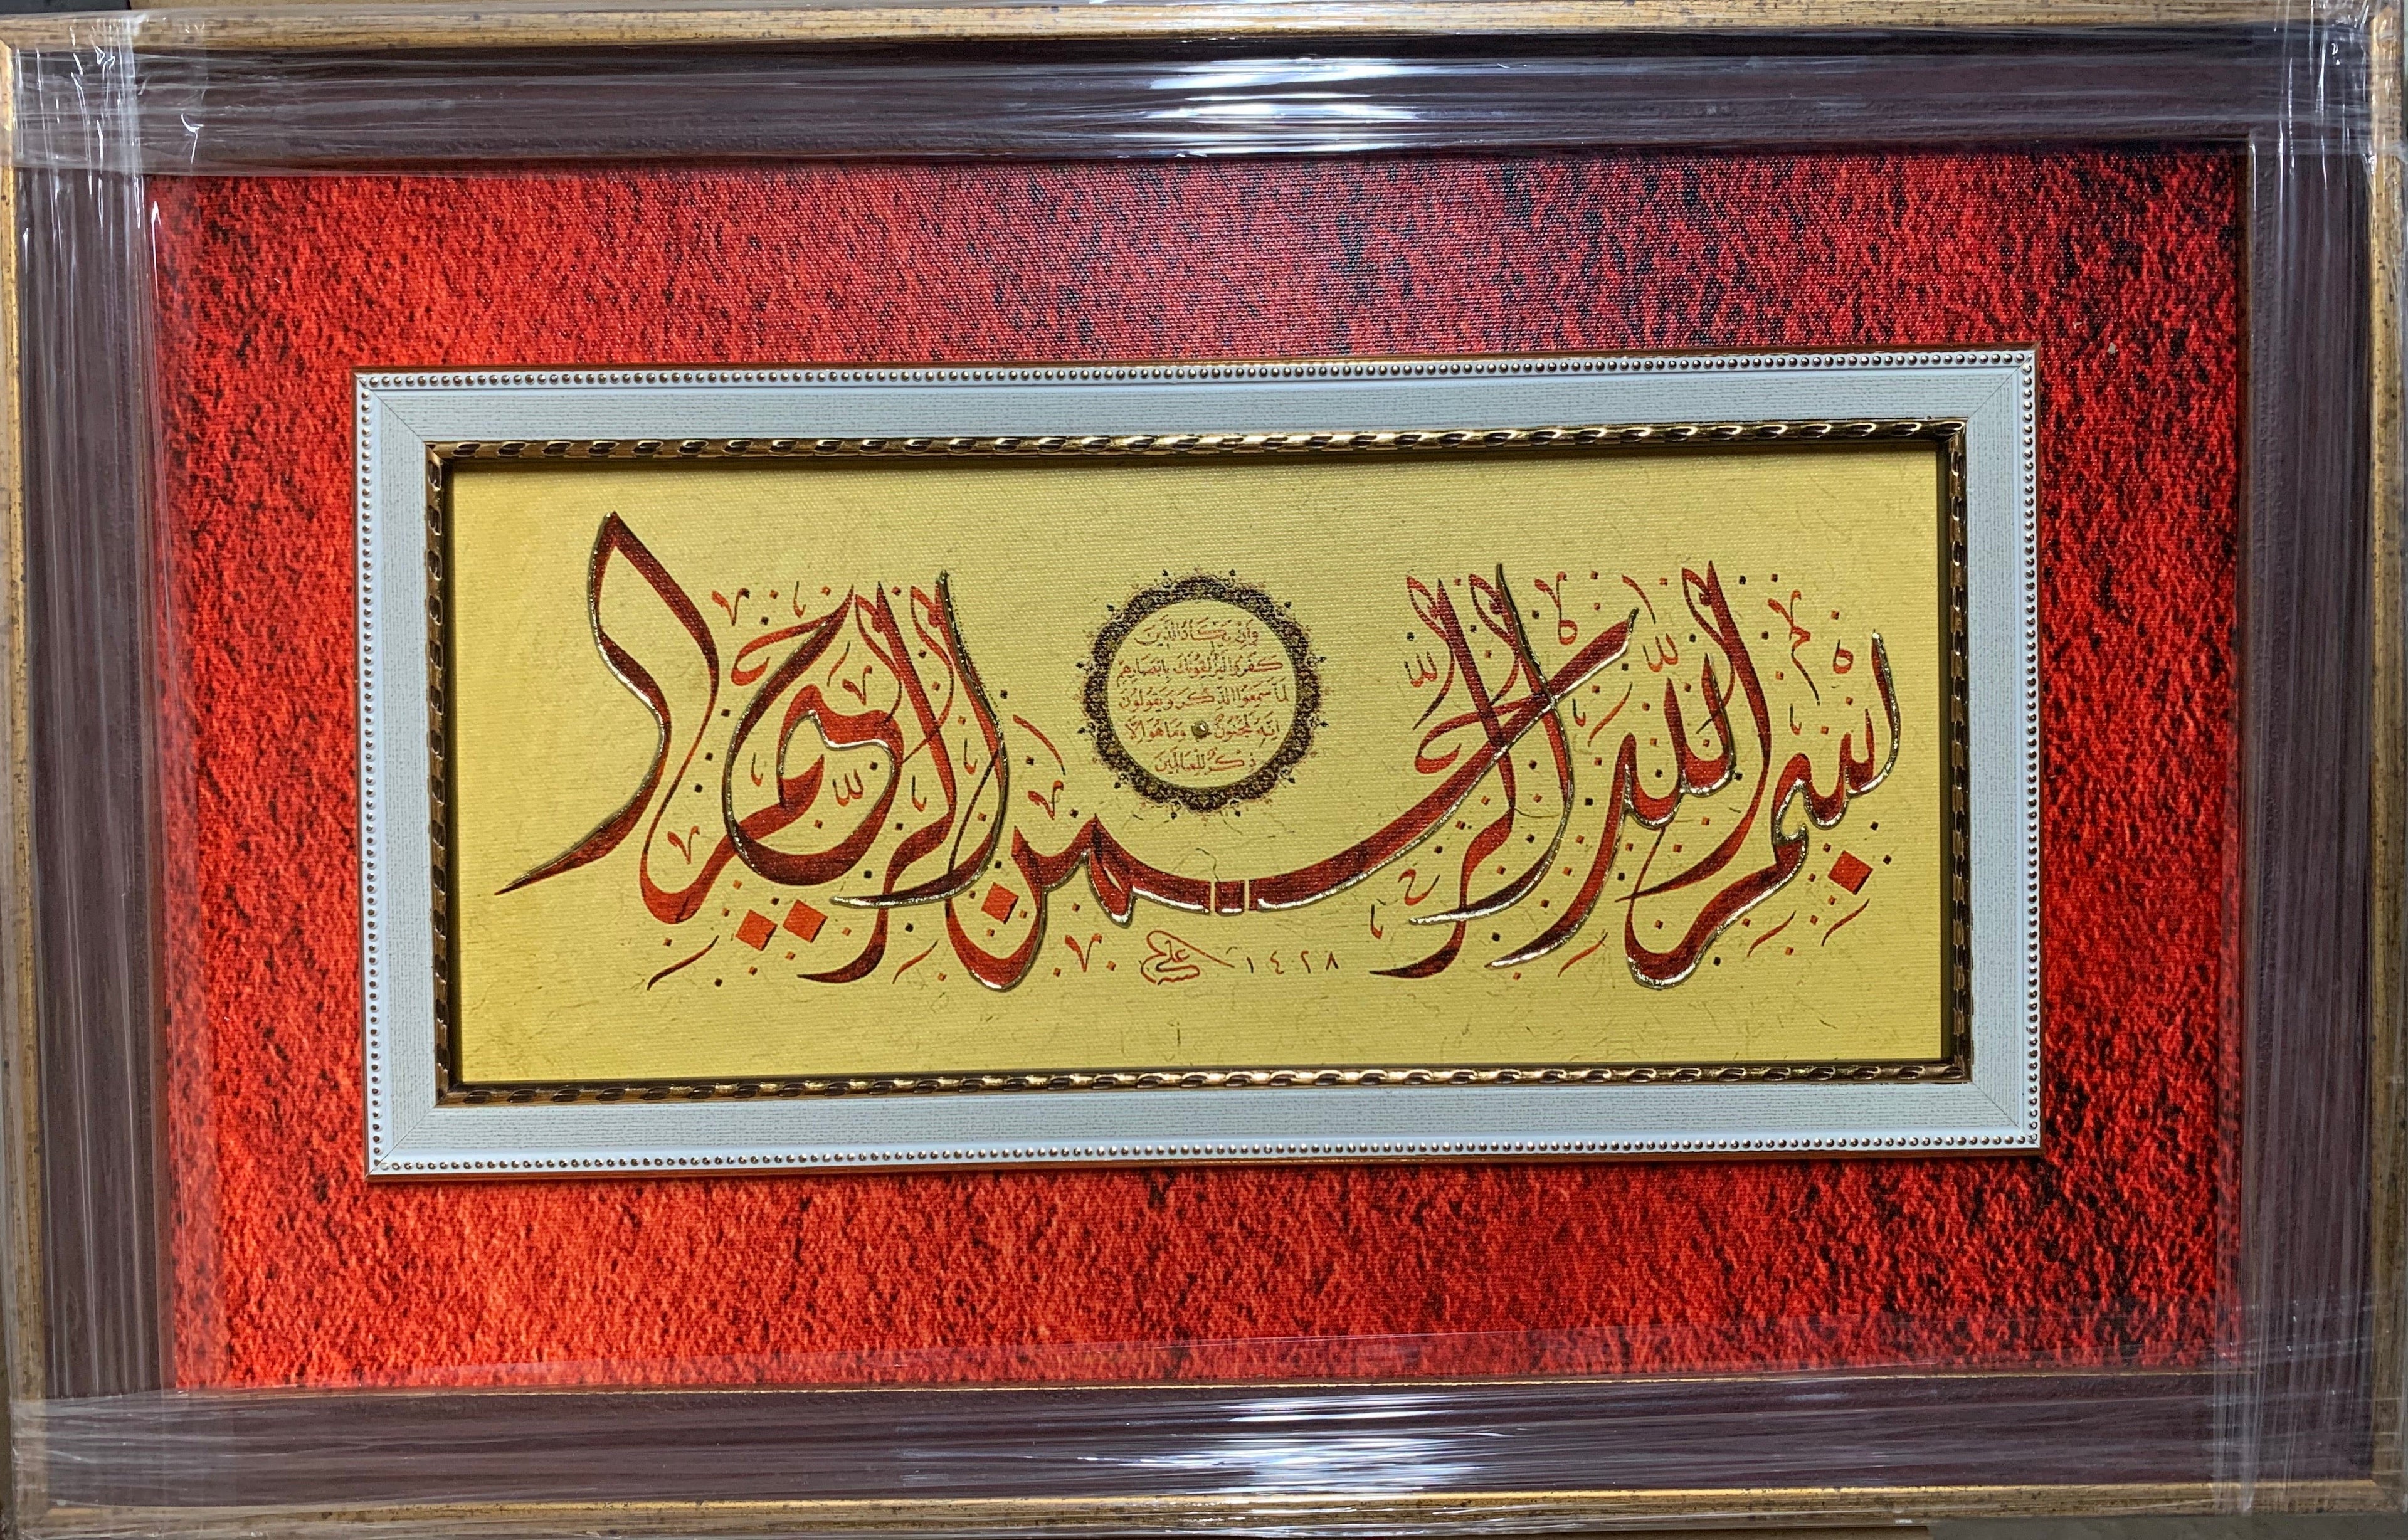 بسم الله الرحمن الرحیم
وَاِنْ یَکادُ الَّذینَ
کَفَروُا لَیُزْلِقُونَکَ بِاَبْصارِهِمْ
لَمّا سَمِعُوا الذِّکْرَ وَیَقُولُونَ
اِنَّهُ لَمَجْنُونٌ وَما هُوَ اِلّا
ذِکْرٌ لِلْعالَمینَ
١٤٢٨